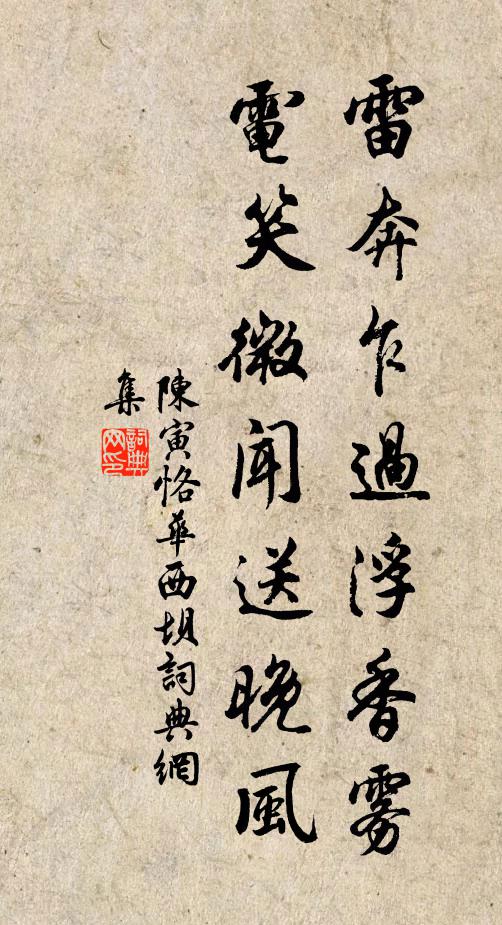 雷奔乍過浮香霧
電笑微聞送晚風
陳寅恪華西坝詞典網
集
詞典網印